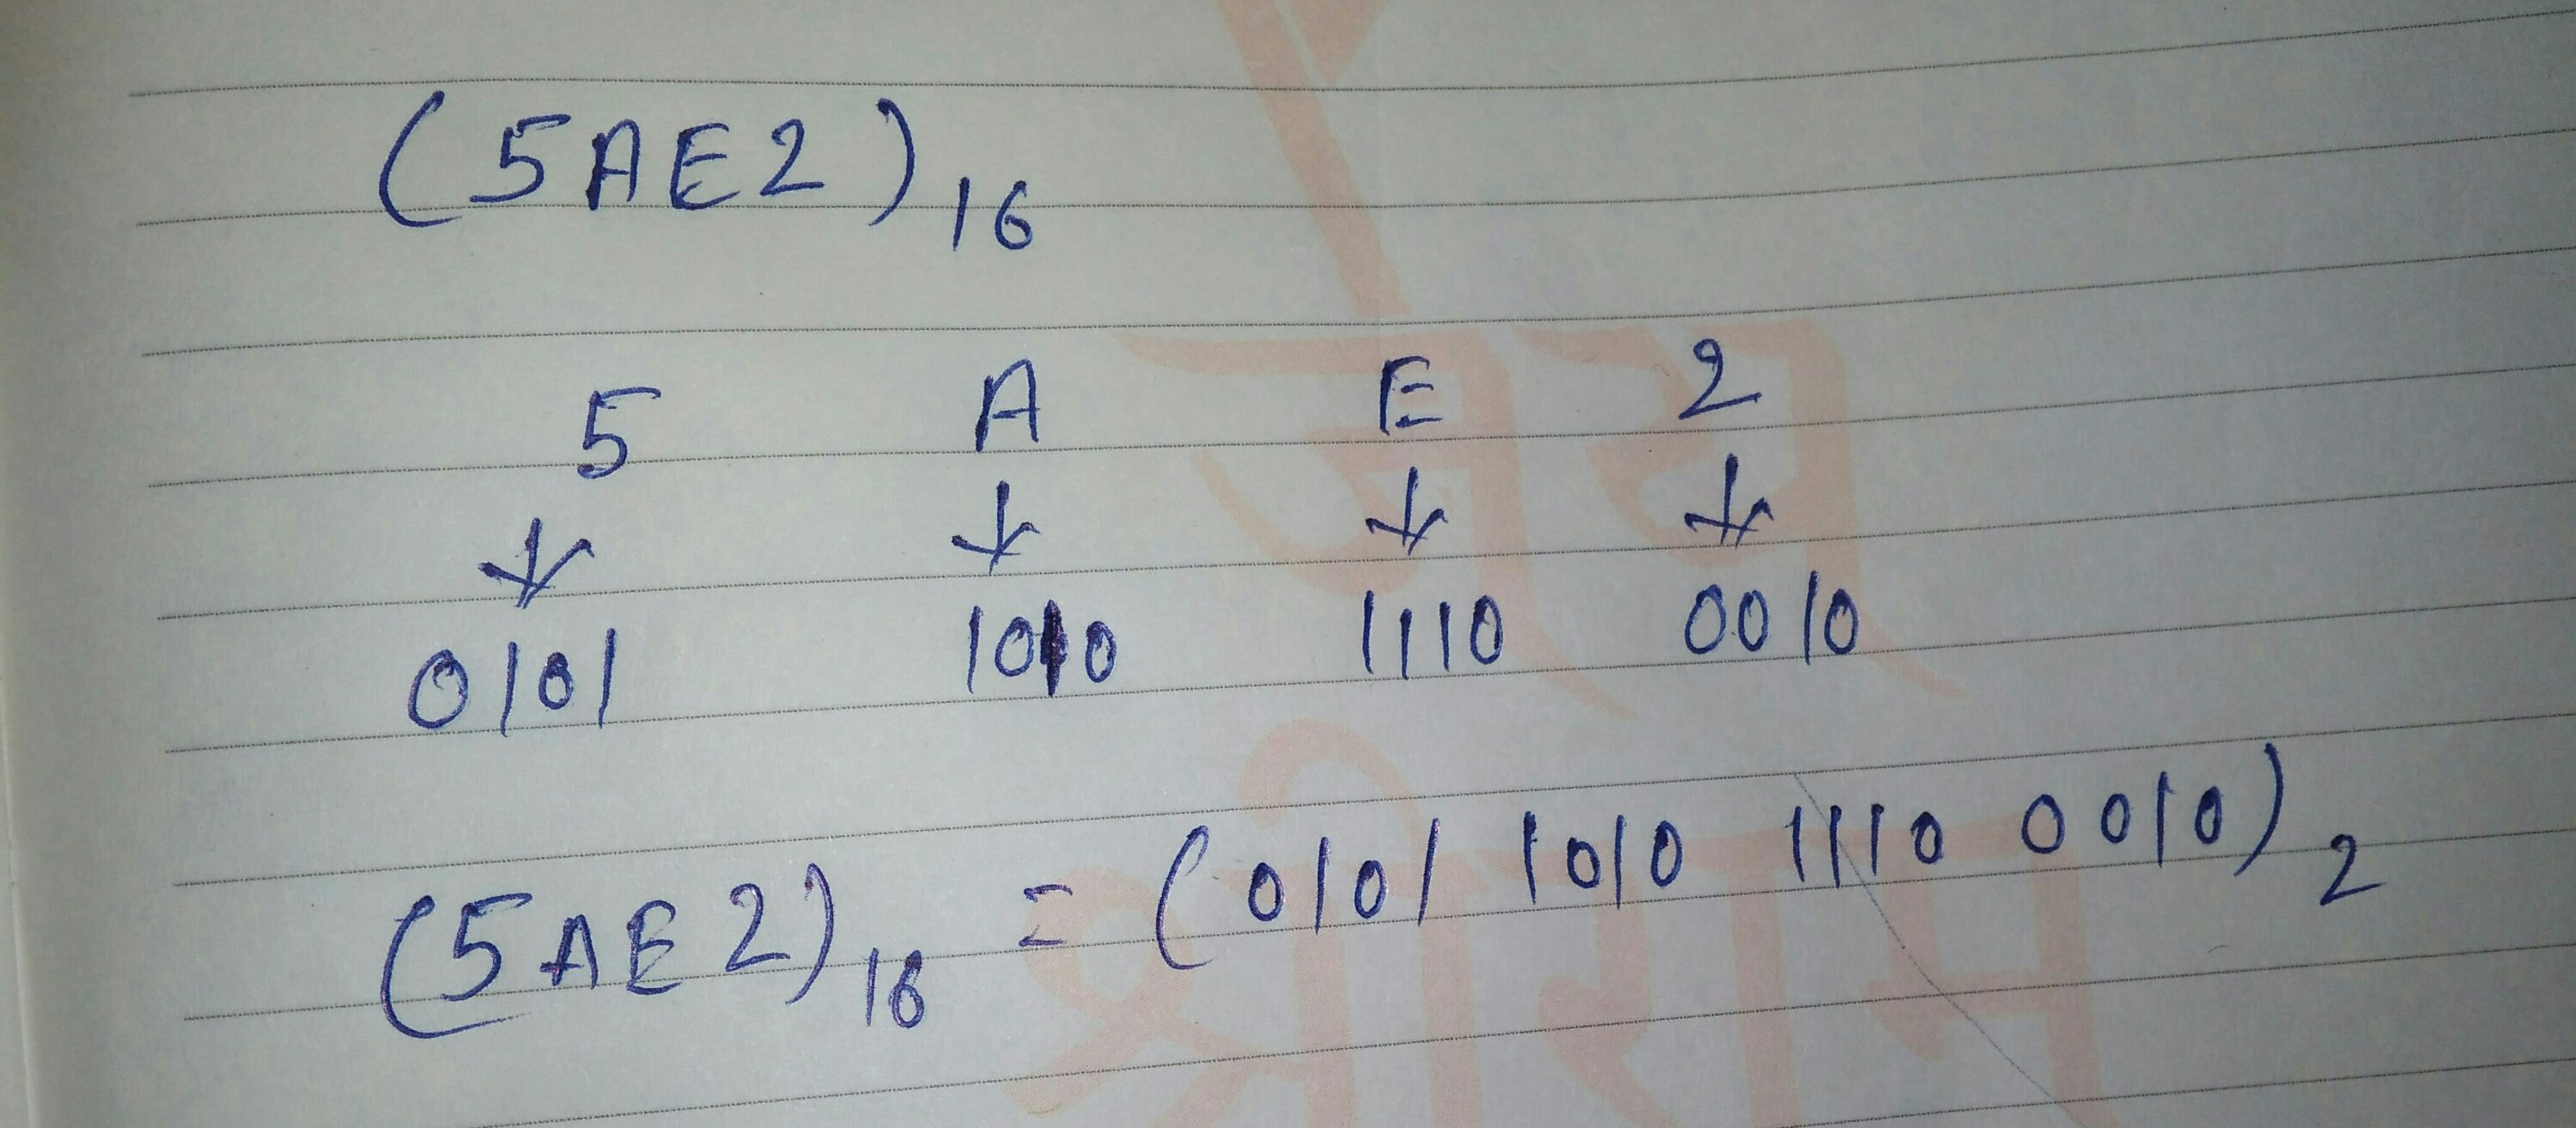 (5AE2)16
5 A E 2
↓ ↓ ↓ ↓
0101 1010 1110 0010
(5AE2)16 = (0101 1010 1110 0010)2
जय
श्रीराम